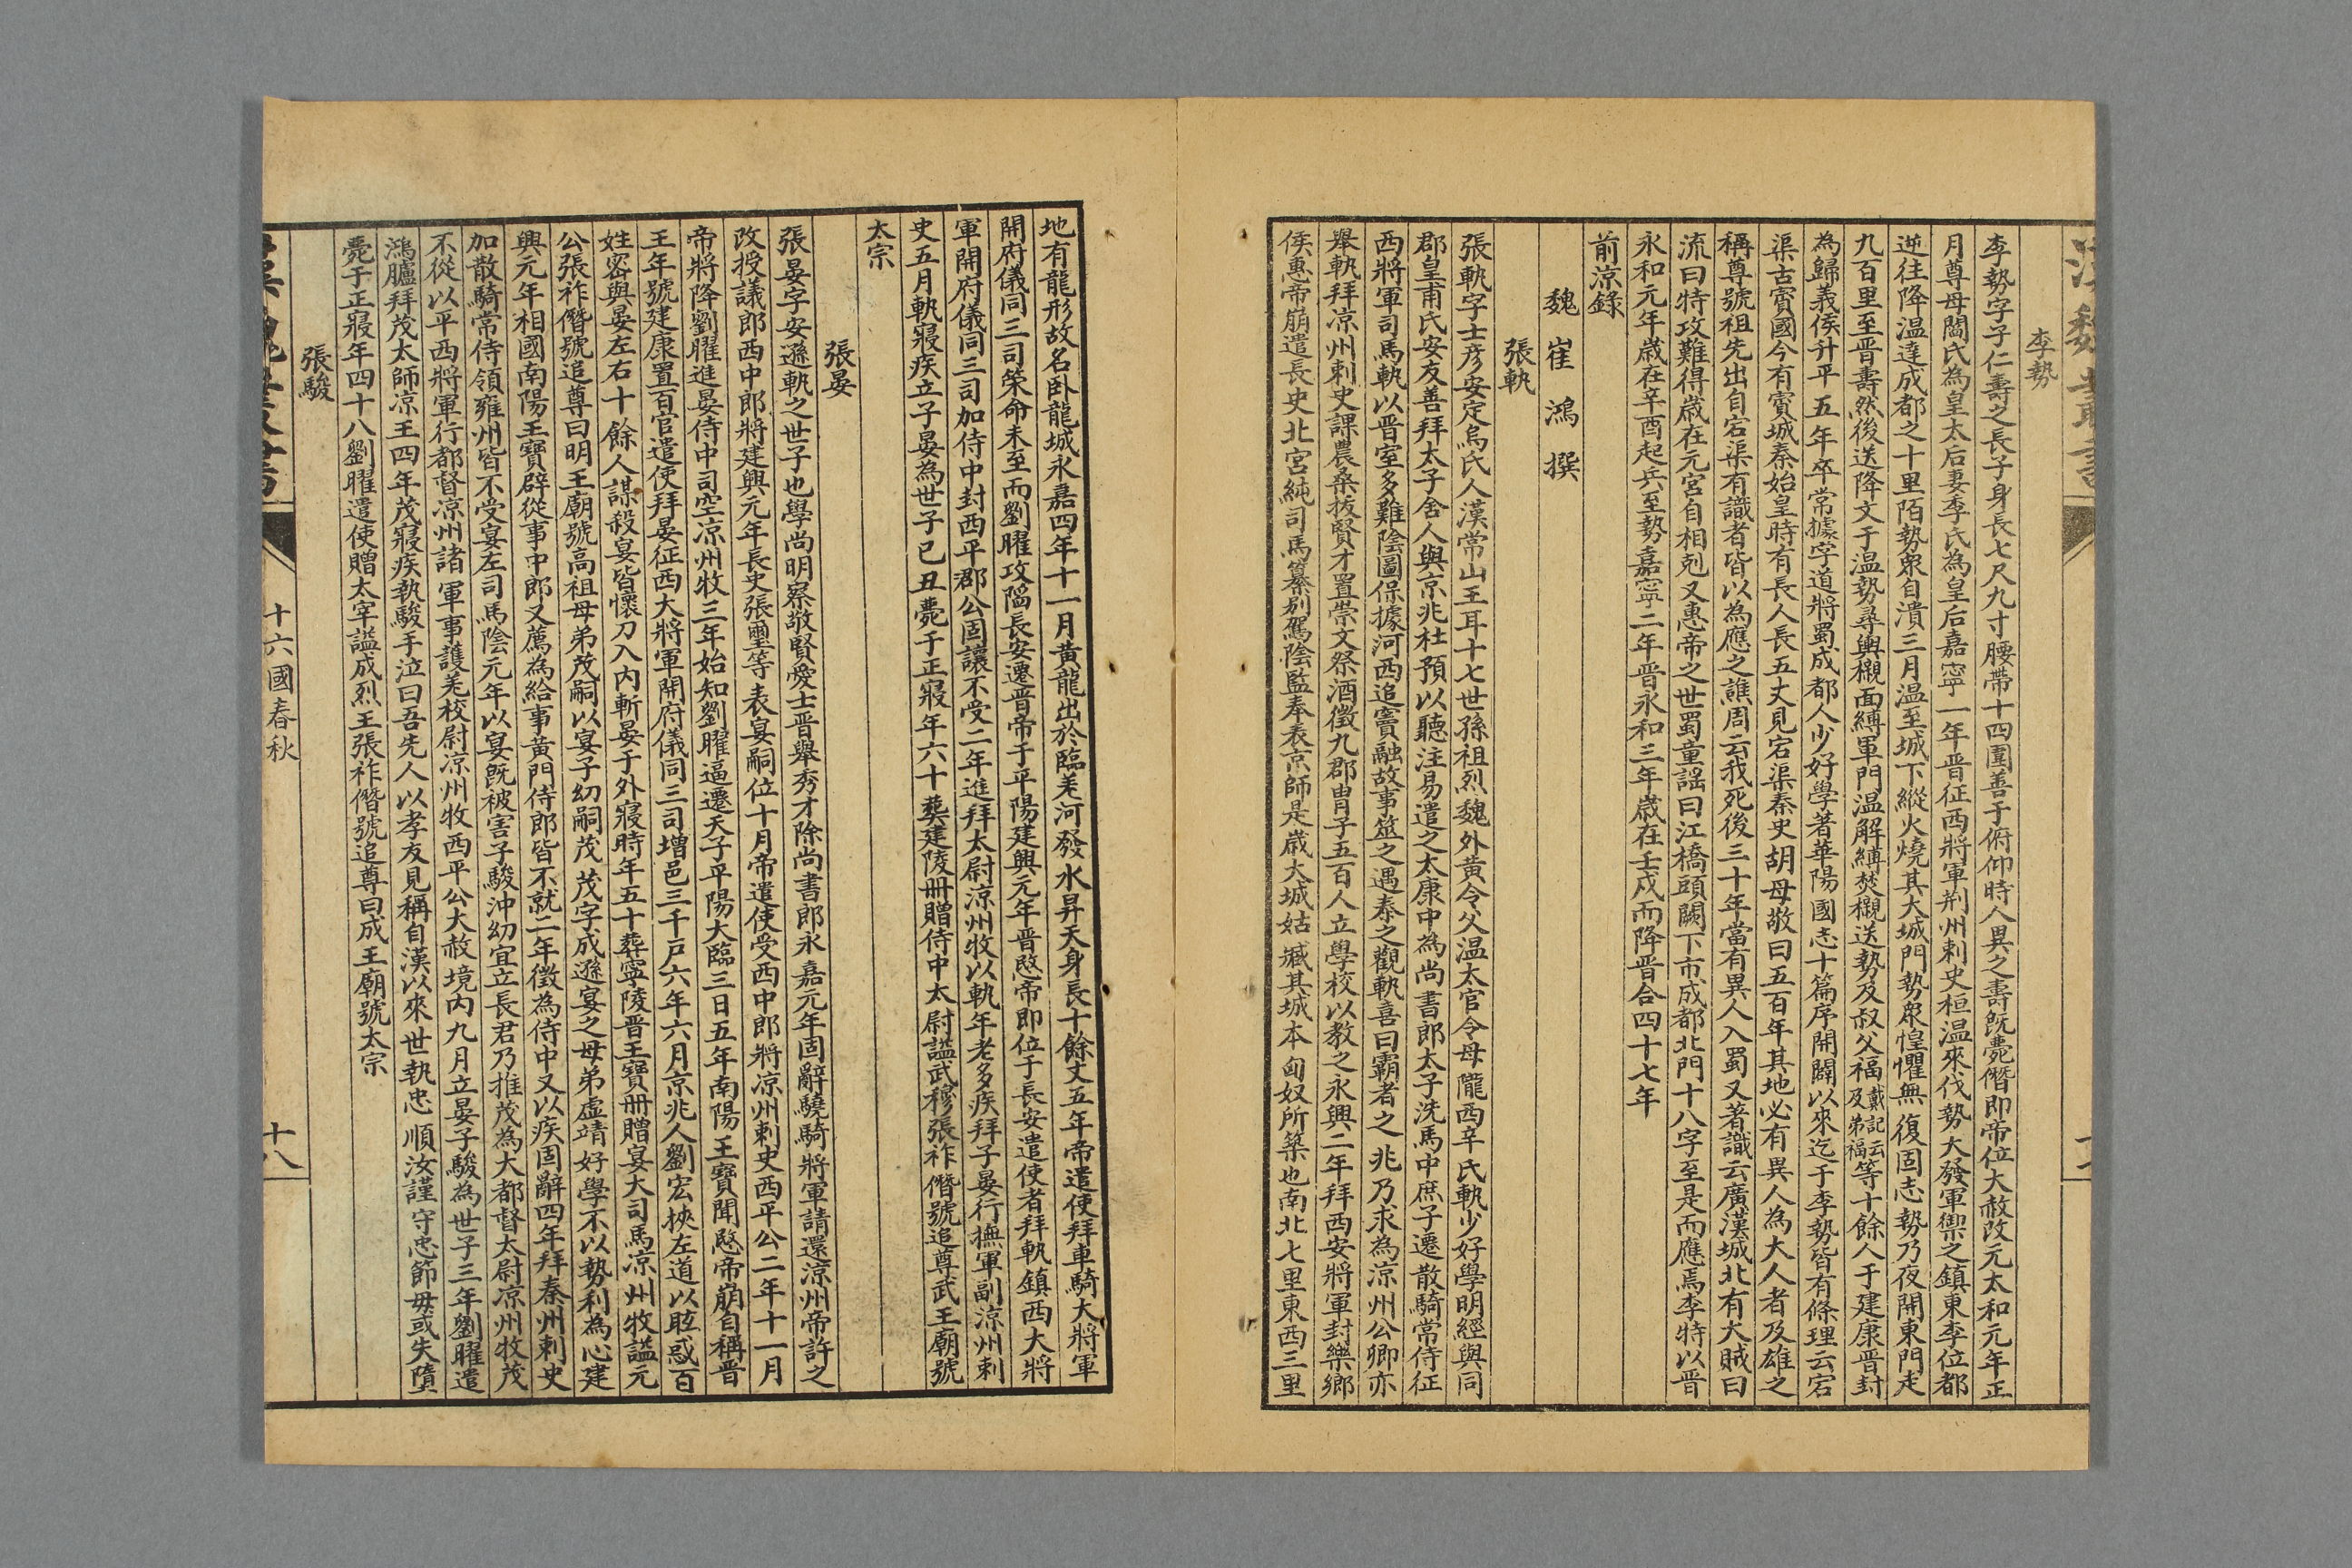 李勢
李勢字子仁壽之長子身長七尺九寸腰帶十四圍善于俯仰時人異之壽旣薨僭即帝位大赦改元太和元年正
月尊母閻氏為皇太后妻李氏為皇后嘉寧一年晋征西將軍荆州刺史桓温來伐勢大發軍禦之鎮東李位都
逆往降温達成都之十里陌勢衆自潰三月温至城下縱火燒其大城門勢衆惶懼無復固志勢乃夜開東門走
九百里至晋壽然後送降文于温勢尋輿櫬面縛軍門温解縛焚櫬送勢及叔父福戴記云及弟福等十餘人于建康晋封
為歸義侯升平五年卒常據字道將蜀成都人少好學著華陽國志十篇序開闢以來迄于李勢皆有條理云宕
渠古賨國今有賨城秦始皇時有長人長五丈見宕渠秦史胡母敬曰五百年其地必有異人為大人者及雄之
稱尊號祖先出自宕渠有識者皆以為應之譙周云我死後三十年當有異人入蜀又著讖云廣漢城北有大賊曰
流曰特攻難得歲在元宮自相剋又惠帝之世蜀童謡曰江橋頭闕下市成都北門十八字至是而應焉李特以晋
永和元年歲在辛酉起兵至勢嘉寧二年晋永和三年歲在壬戍而降晋合四十七年
前涼錄
魏 崔 鴻 撰
張軌
張軌字士彦安定烏氏人漢常山王耳十七世孫祖烈魏外黄令父温太官令母隴西辛氏軌少好學明經與同
郡皇甫氏安友善拜太子舍人與京兆杜預以聽注易遣之太康中為尚書郎太子洗馬中庶子遷散騎常侍征
西將軍司馬軌以晋室多難陰圖保據河西追竇融故事筮之遇泰之觀軌喜曰霸者之兆乃求為涼州公卿亦
舉軌拜凉州刺史課農桑拔賢才置崇文祭酒徵九郡胄子五百人立學校以教之永興二年拜西安將軍封樂鄉
侯惠帝崩遣長史北宮純司馬纂别駕陰監奉表京師是歲大城姑臧其城本匈奴所築也南北七里東西三里
地有龍形故名卧龍城永嘉四年十一月黄龍出於臨羌河發水昇天身長十餘丈五年帝遣使拜車騎大將軍
開府儀同三司榮命未至而劉曜攻陷長安遷晋帝于平陽建興元年晋愍帝即位于長安遣使者拜軌鎮西大將
軍開府儀同三司加侍中封西平郡公固讓不受二年進拜太尉涼州牧以軌年老多疾拜子晏行撫軍副涼州刺
史五月軌寢疾立子晏為世子己丑薨于正寢年六十葬建陵册贈侍中太尉謚武穆張祚僭號追尊武王廟號
太宗
張晏
張晏字安遜軌之世子也學尚明察敬賢愛士晋舉秀才除尚書郎永嘉元年固辭驍騎將軍請還涼州帝許之
改授議郎西中郎將建興元年長史張璽等表宴嗣位十月帝遣使受西中郎將涼州刺史西平公二年十一月
帝將降劉曜進晏侍中司空凉州牧三年始知劉曜逼遷天子平陽大臨三日五年南陽王寶聞愍帝崩自稱晋
王年號建康置百官遣使拜晏征西大將軍開府儀同三司增邑三千戸六年六月京兆人劉宏挾左道以眩惑百
姓密與晏左右十餘人謀殺宴皆懷刀入内斬晏于外寢時年五十葬寧陵晋王寶册贈宴大司馬凉州牧謚元
公張祚僭號追尊曰明王廟號高祖母弟茂嗣以宴子幼嗣茂茂字成遜宴之母弟虚靖好學不以勢利為心建
興元年相國南陽王寶辟從事中郎又薦為給事黄門侍郎皆不就二年徵為侍中又以疾固辭四年拜秦州刺史
加散騎常侍領雍州皆不受宴左司馬陰元年以宴旣被害子駿沖幼宜立長君乃推茂為大都督太尉凉州牧茂
不從以平西將軍行都督凉州諸軍事護羌校尉凉州牧西平公大赦境内九月立晏子駿為世子三年劉曜遣
鴻臚拜茂太師凉王四年茂寢疾執駿手泣曰吾先人以孝友見稱自漢以來世執忠順汝謹守忠節毋或失墮
薨于正寢年四十八劉曜遣使贈太宰謚成烈王張祚僭號追尊曰成王廟號太宗
張駿
十六國春秋
十八